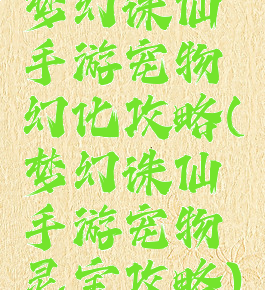 梦幻诛仙
手游宠物
幻化攻略(
梦幻诛仙
手游宠物
灵宝攻略)